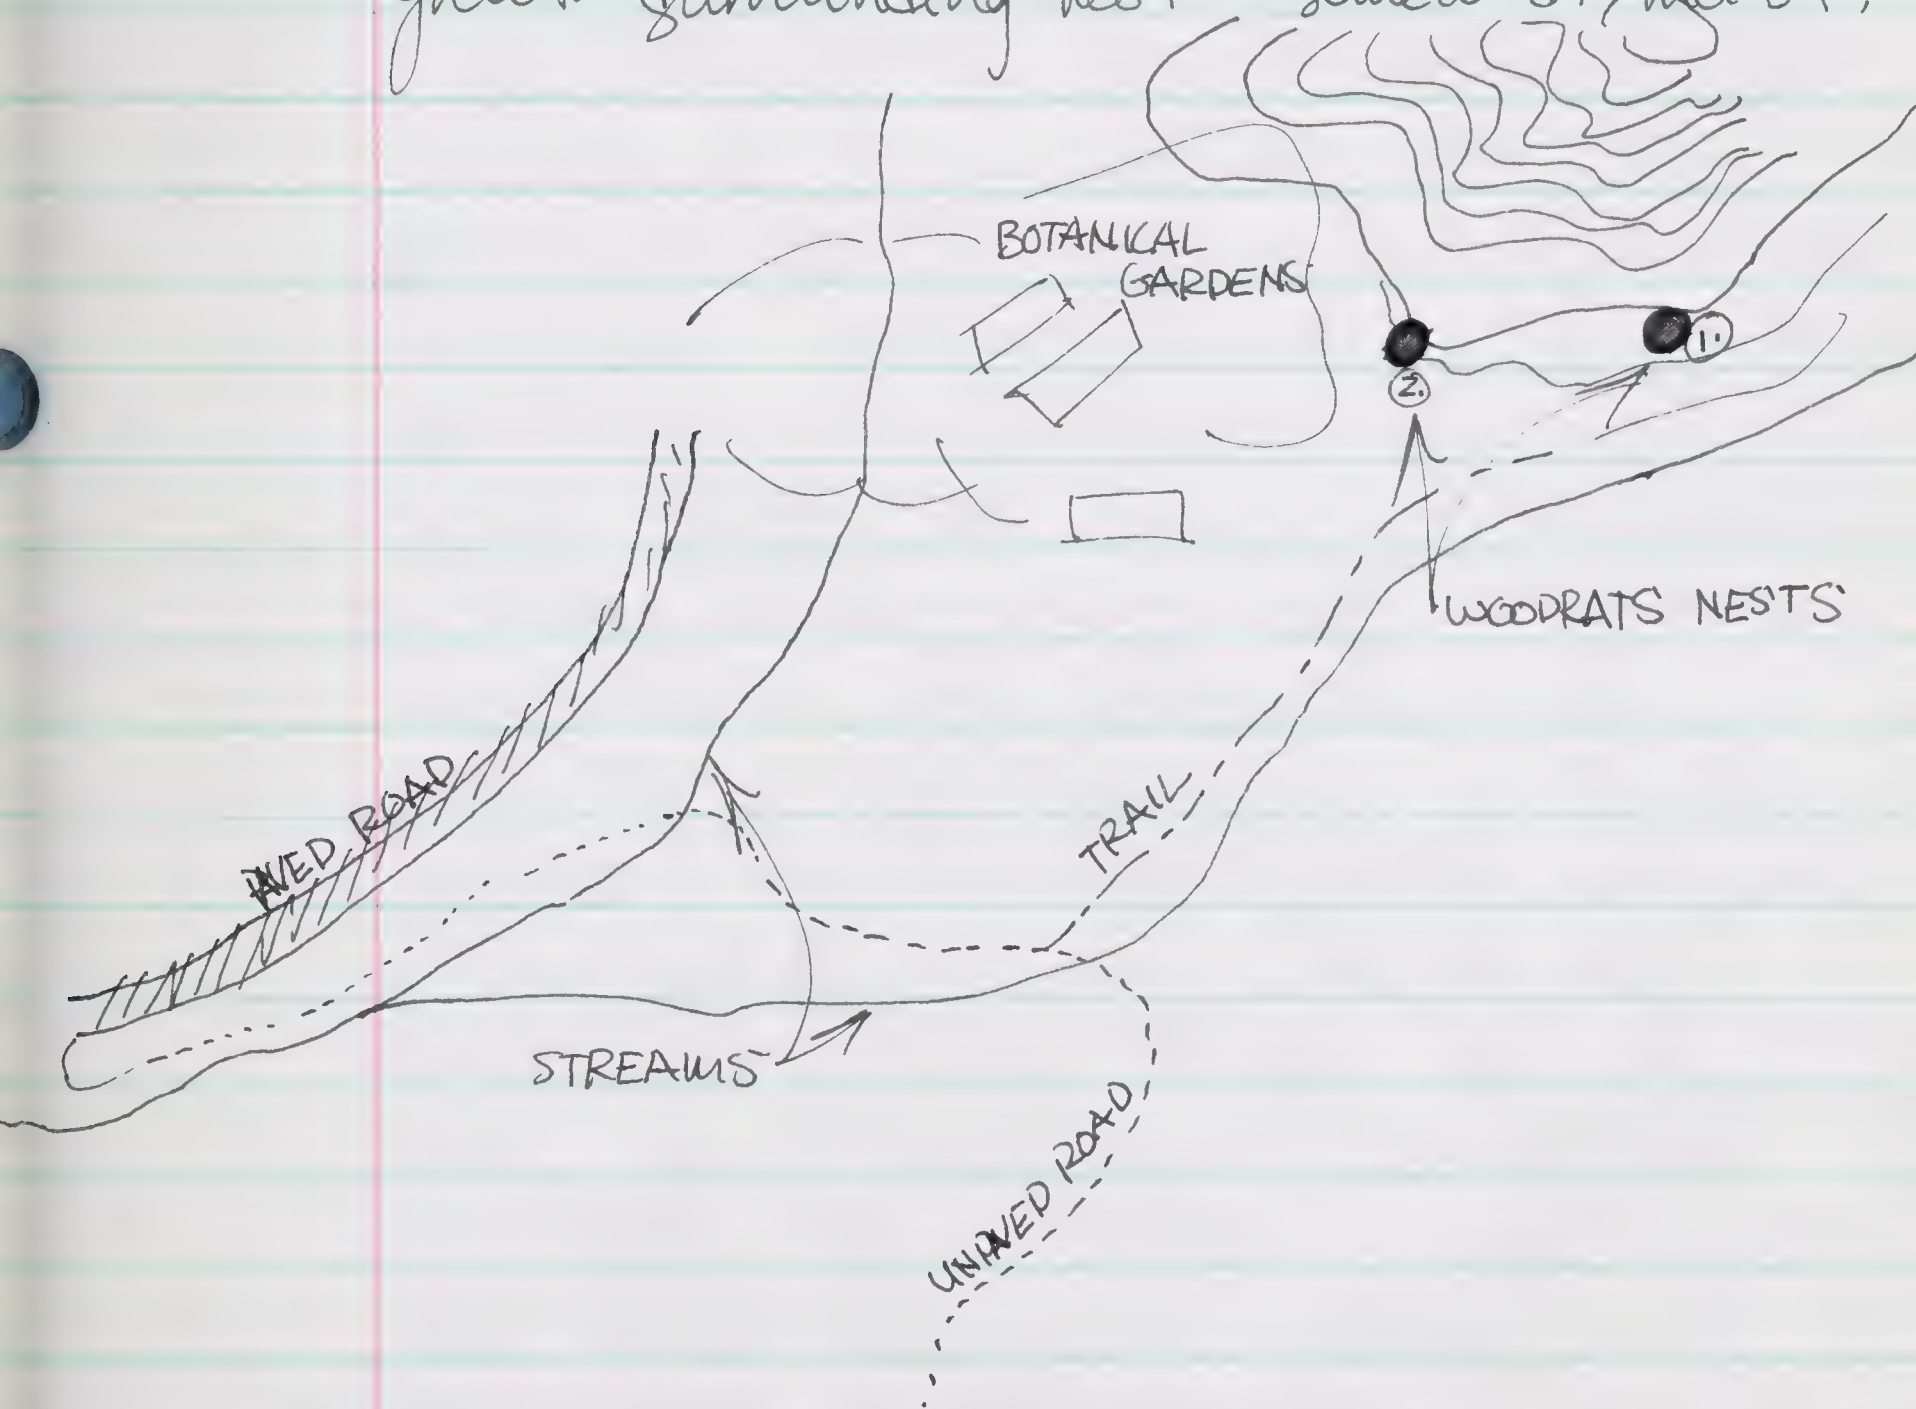 surrounding nest
BOTANICAL
GARDENS
1.
2.
WOODRATS NESTS
PAVED ROAD
TRAIL
STREAMS
UNPAVED ROAD